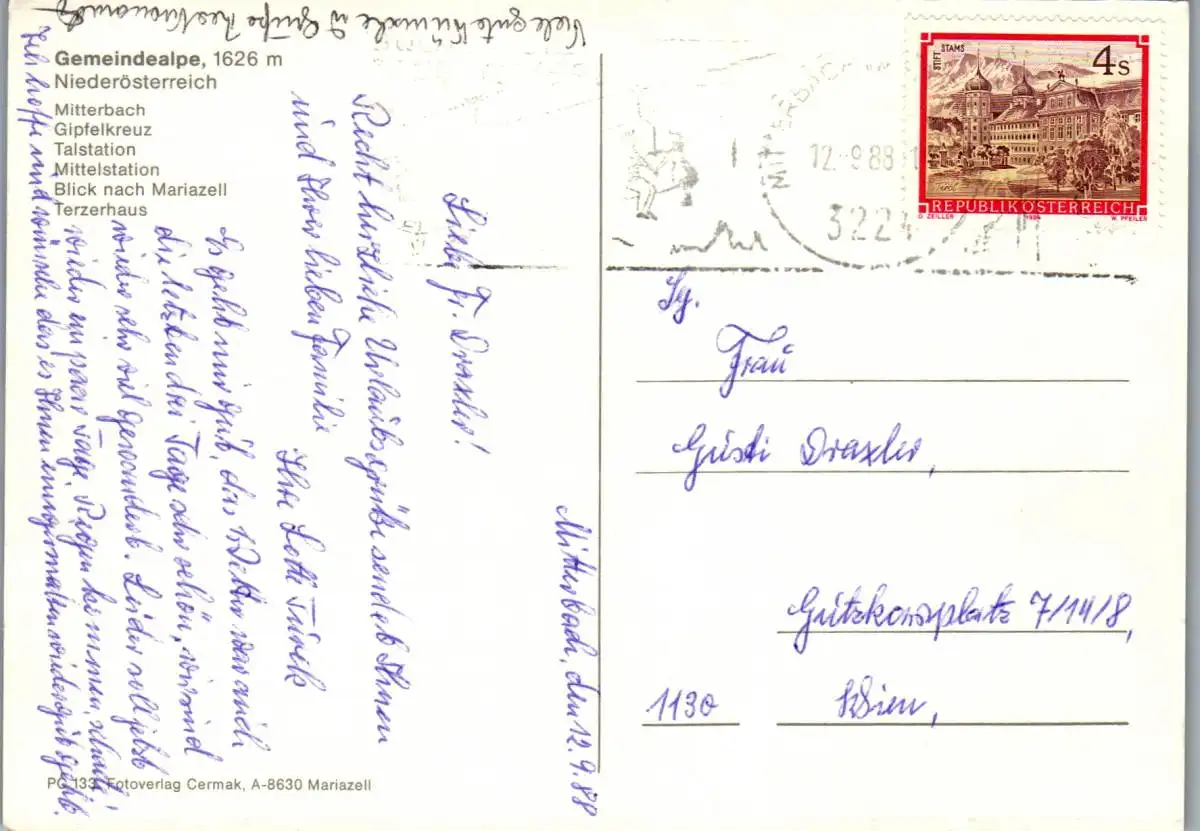 Gemeindealpe, 1626 m
Niederösterreich
Mitterbach
Gipfelkreuz
Talstation
Mittelstation
Blick nach Mariazell
Terzerhaus
Mitterbach, den 12.9.88
Liebe Fr. Draxler!
Recht herzliche Urlaubsgrüße sendet Ihnen
und Ihrer lieben Familie
Ihre Lotte
Es geht mir gut, das Wetter war auch
die letzten drei Tage sehr schön, wir sind
wieder sehr viel gewandert. Leider soll jetzt
wieder ein paar Tage Regen kommen, schade!
Ich hoffe und wünsche das es Ihnen einigermaßen wieder gut geht.
Viele gute Wünsche u Grüße
PG 133 Fotoverlag Cermak, A-8630 Mariazell
STIFT STAMS
4 S
Tirol
REPUBLIK ÖSTERREICH
O. ZEILLER 1984 W. PFEILER
MITTERBACH
12.-9.88
322
Sg.
Frau
Gusti Draxler,
Gutzkowplatz 7/14/8,
1130 Wien,